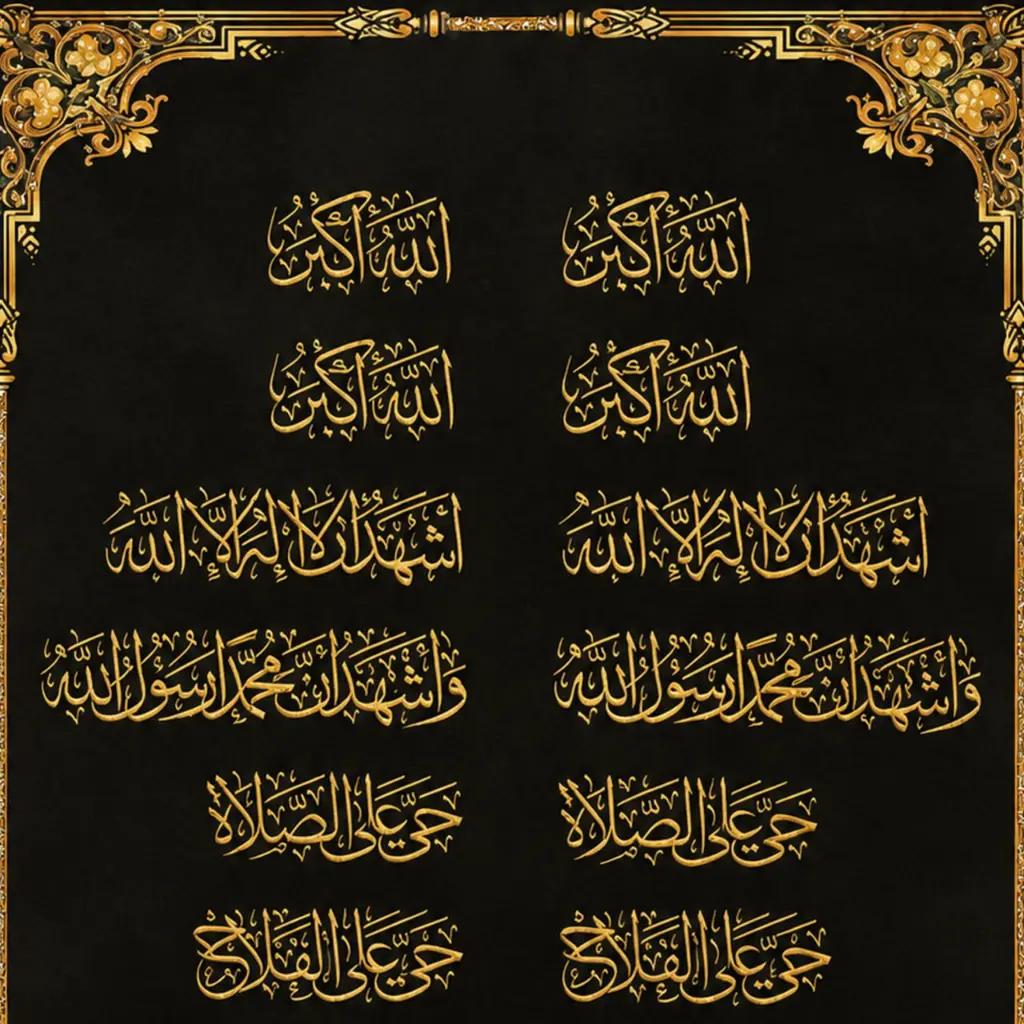 اللهُ أَكْبَرُ اللهُ أَكْبَرُ
اللهُ أَكْبَرُ اللهُ أَكْبَرُ
أَشْهَدُ أَنْ لَا إِلٰهَ إِلَّا اللَّهُ أَشْهَدُ أَنْ لَا إِلٰهَ إِلَّا اللَّهُ
وَأَشْهَدُ أَنَّ مُحَمَّدًا رَسُولُ اللَّهُ وَأَشْهَدُ أَنَّ مُحَمَّدًا رَسُولُ اللَّهُ
حَيَّ عَلَى الصَّلَاةِ حَيَّ عَلَى الصَّلَاةِ
حَيَّ عَلَى الْفَلَاحِ حَيَّ عَلَى الْفَلَاحِ